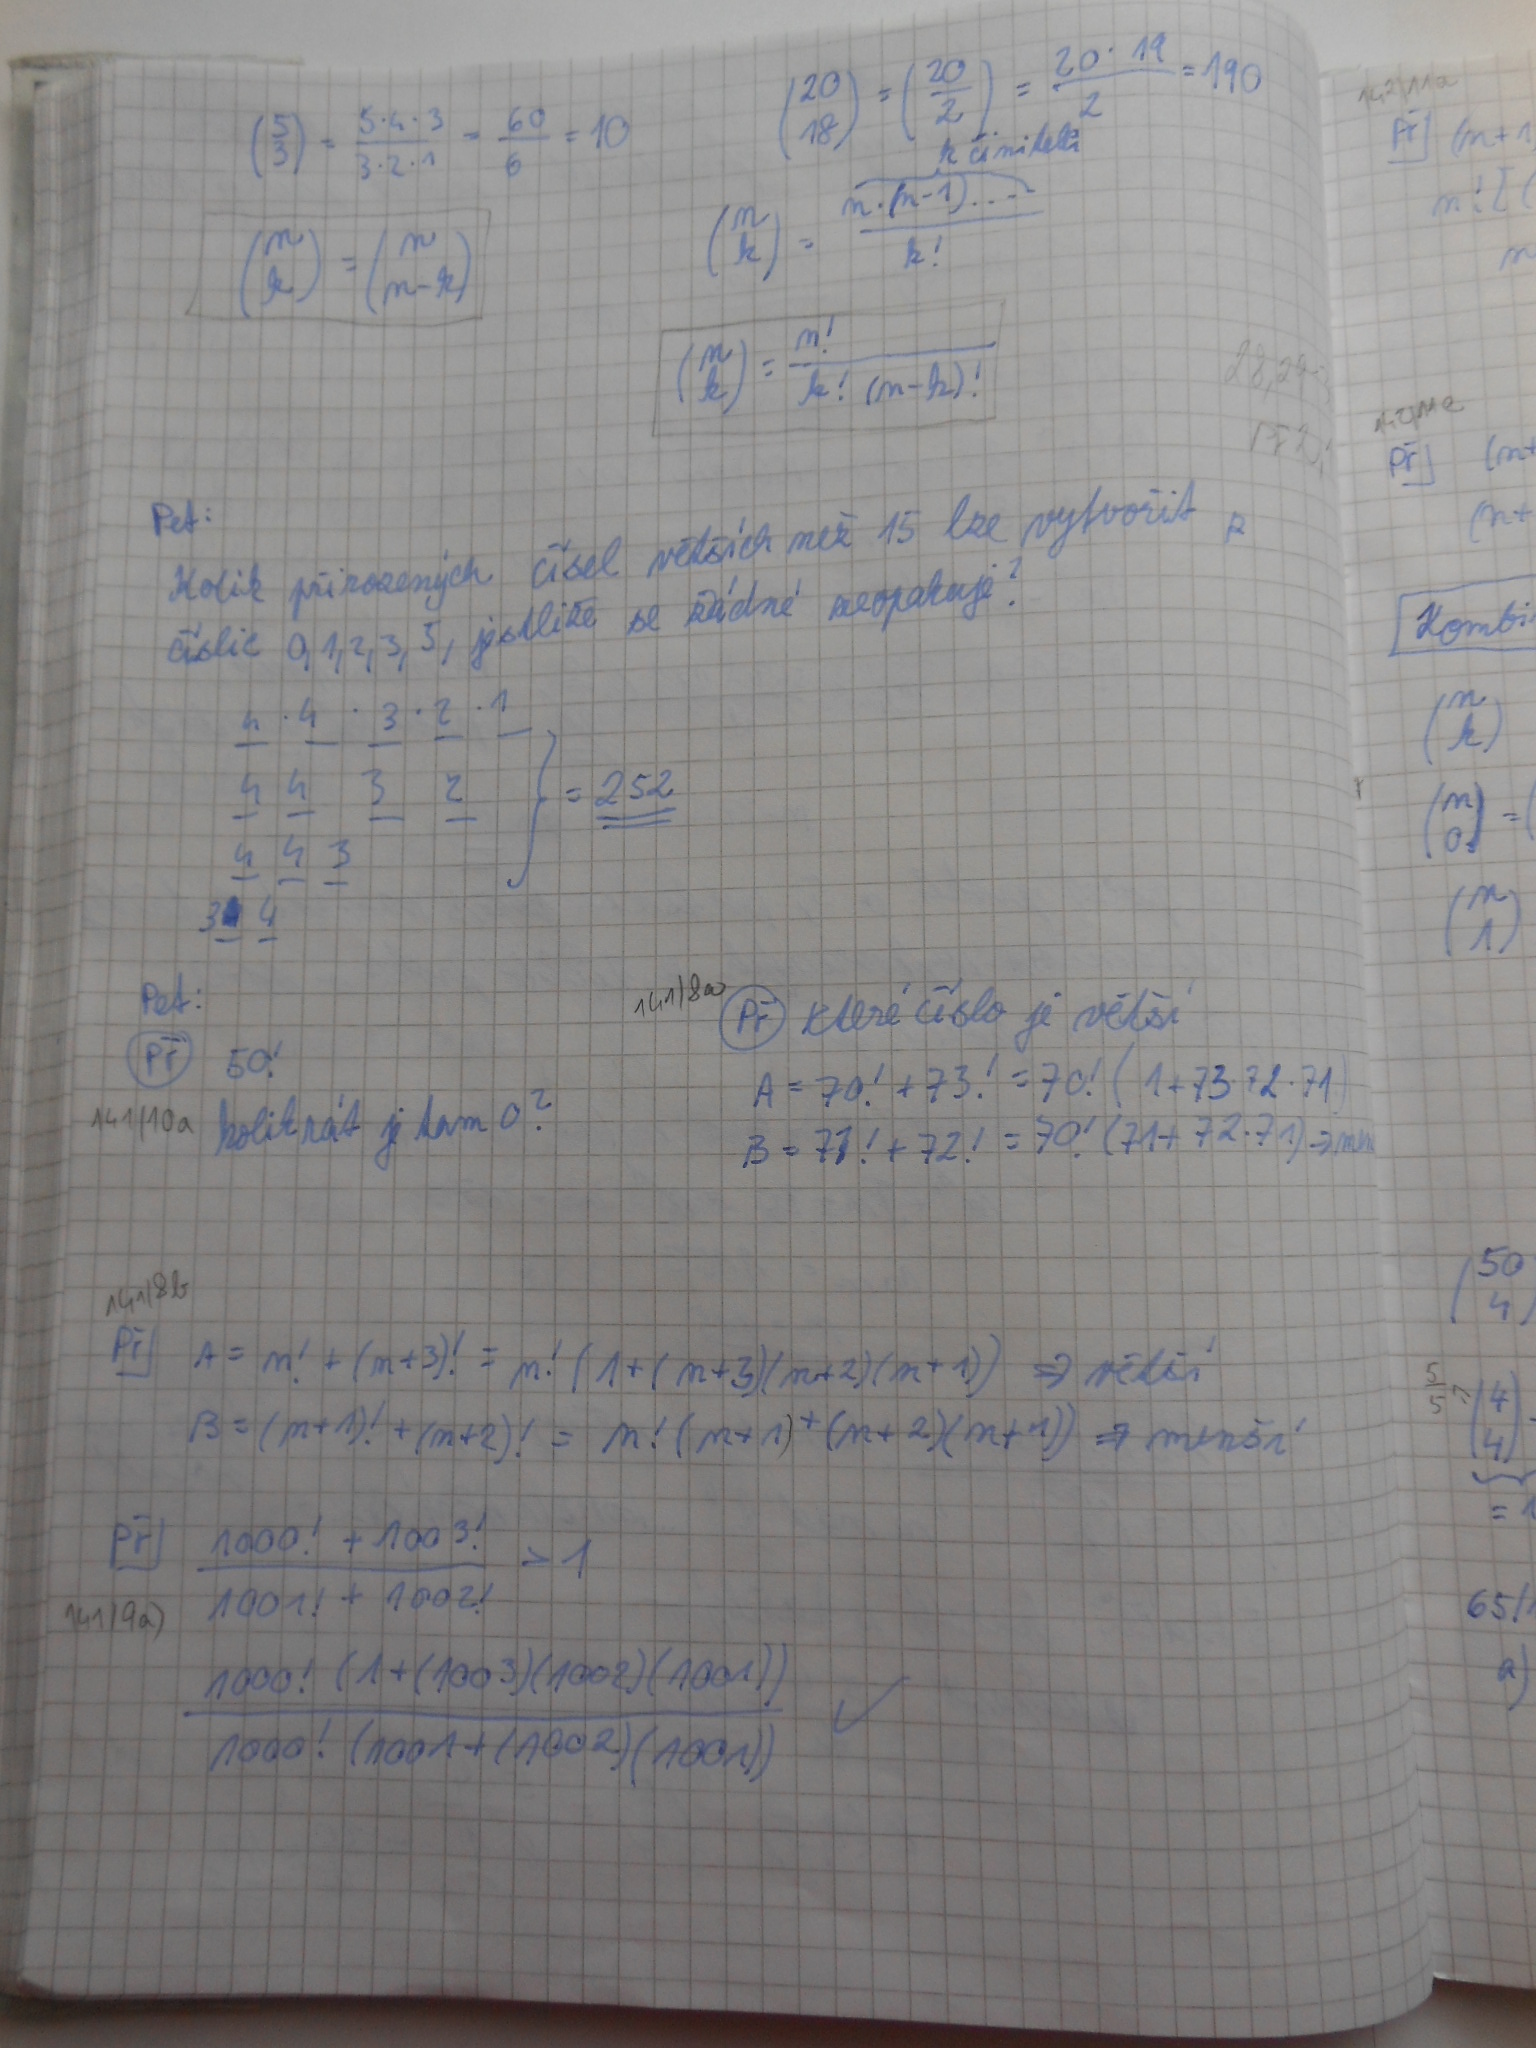 (5 3) = 5·4·3 / 3·2·1 = 60/6 = 10
(20 18) = (20/2) = 20·19 / 2 = 190
(n k) = (n n-k)
k činitelů
(n k) = n·(n-1)..... / k!
(n k) = n! / k! (n-k)!
Pet:
Kolik přirozených čísel větších než 15 lze vytvořit z
číslic 0, 1, 2, 3, 5, jestliže se žádné neopakuje?
4 · 4 · 3 · 2 · 1
4 4 3 2 } = 252
4 4 3
3 4
Pet:
Př 50!
141/10a kolikrát je tam 0?
141/8a Př které číslo je větší
A = 70! + 73! = 70! (1+73·72·71)
B = 71! + 72! = 70! (71+72·71) ⇒
141/8b
Př] A = n! + (n+3)! = n! (1+(n+3)(n+2)(n+1)) ⇒ větší
B = (n+1)! + (n+2)! = n! (n+1)+(n+2)(n+1)) ⇒ menší
Př] 1000! + 1003! / 1001! + 1002! > 1
141/9a)
1000! (1+(1003)(1002)(1001)) / 1000! (1001+(1002)(1001)) ✓
142/11a
Př] (n+1)
n! [(
Př] (n+
(n+
Kombi
(n k)
(n 0) = (
(n 1)
(50 4)
5/5 (4 4)
= 1
65/1
a)